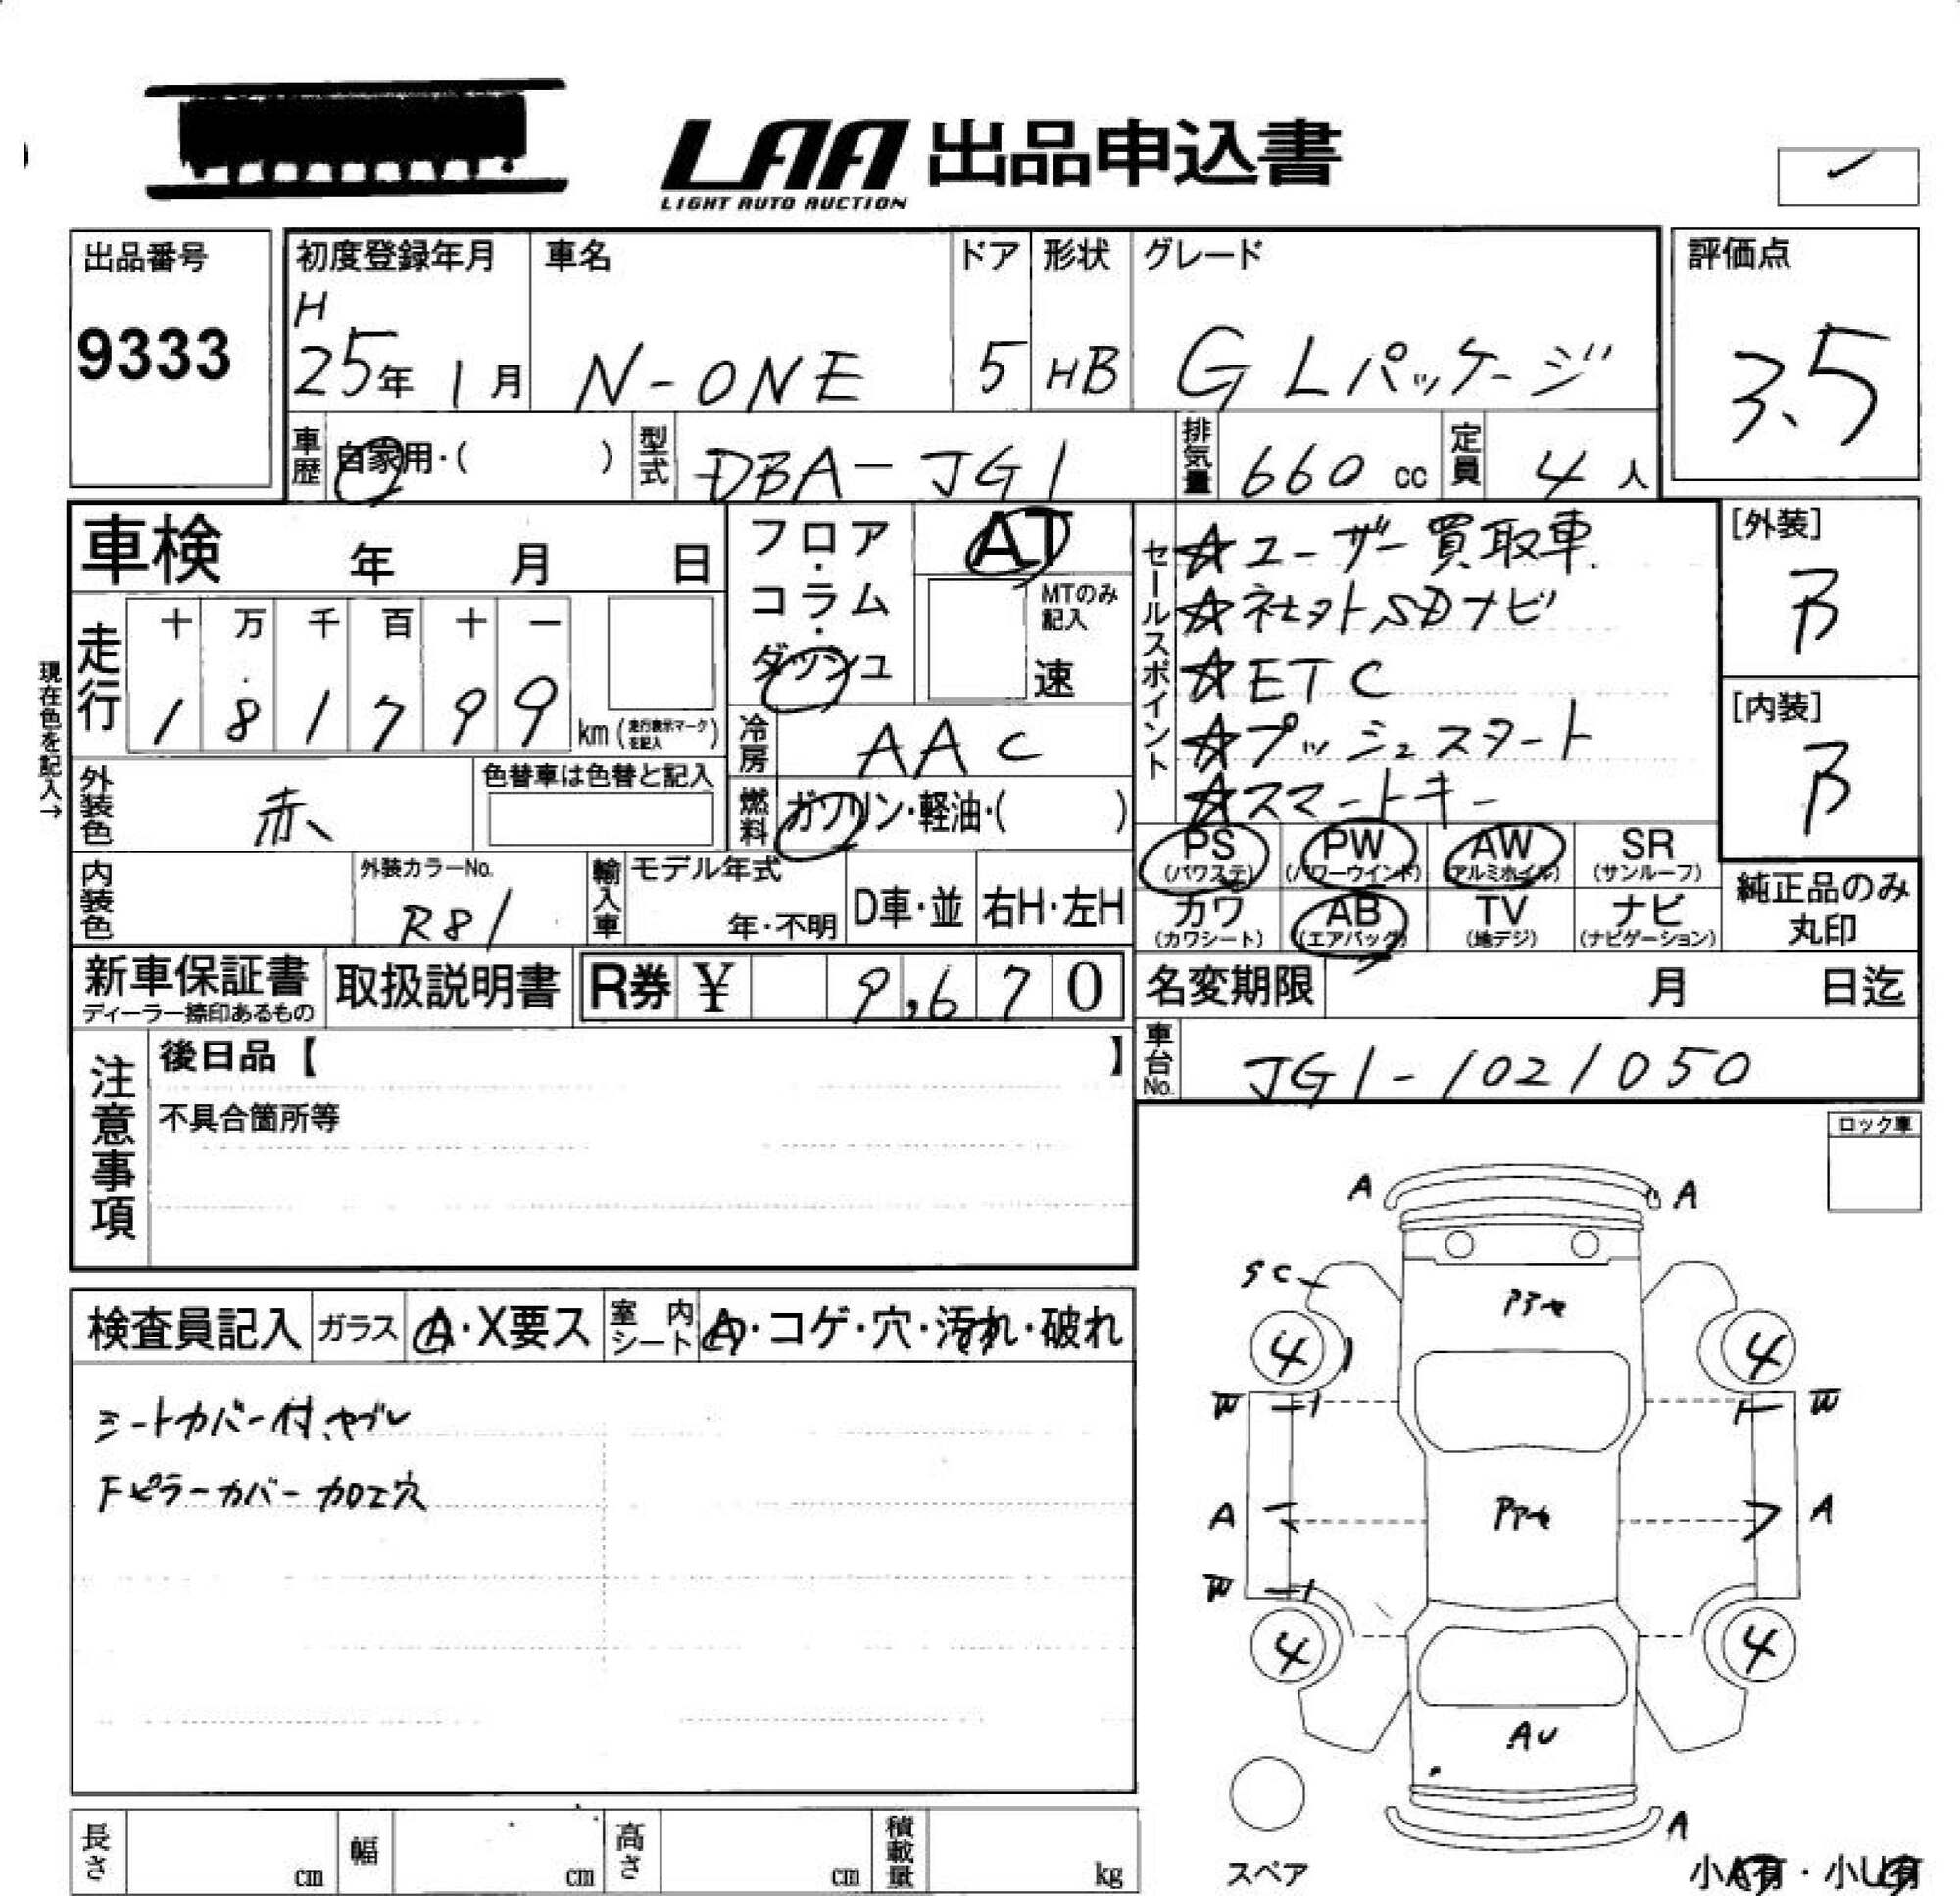 LAA 出品申込書
LIGHT AUTO AUCTION
出品番号
9333
初度登録年月
H
25年 1月
車名
N-ONE
ドア
5
形状
HB
グレード
G Lパッケージ
評価点
3.5
車歴
自家用・( )
型式
DBA-JG1
排気量
660 cc
定員
4 人
車検 年 月 日
フロア・コラム・ダッシュ
AT
MTのみ記入
速
セールスポイント
☆ユーザー買取車
☆ETC
☆プッシュスタート
☆スマートキー
[外装]
B
[内装]
B
現在色を記入→
走行
十 万 千 百 十 一
1 8 1 7 9 9
km (走行表示マークを記入)
冷房
AAC
外装色
赤
色替車は色替と記入
燃料
ガソリン・軽油・( )
PS (パワステ)
PW (パワーウインド)
AW (アルミホイル)
SR (サンルーフ)
カワ (カワシート)
AB (エアバッグ)
TV (地デジ)
ナビ (ナビゲーション)
純正品のみ丸印
内装色
外装カラーNo.
R81
輸入車
モデル年式
年・不明
D車・並
右H・左H
新車保証書
ディーラー捺印あるもの
取扱説明書
R券 ¥ 9,670
名変期限 月 日迄
車台No.
JG1-1021050
注意事項
後日品【 】
不具合箇所等
ロック車
検査員記入
ガラス
A・X要ス
室内シート
A・コゲ・穴・汚れ・破れ
シートカバー付、ヤブレ
Fピラーカバー加工穴
A A
SC
4 4
W W
A A
W
4 4
AU
A
スペア
長さ cm
幅 cm
高さ cm
積載量 kg
小A有・小U有